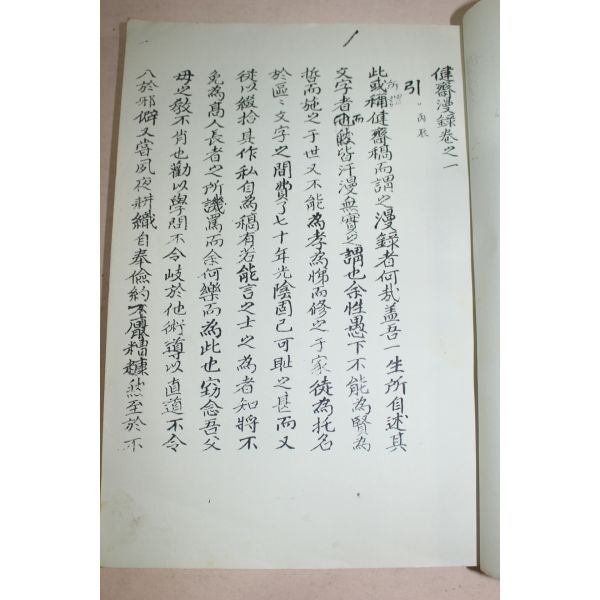 健齋漫錄卷之一
引 丙辰
此或稱健齋稿而謂之漫錄者何哉盖吾一生所自述其
所謂文字者他皆汗漫無實之謂也余性愚下不能為賢為
哲而施之于世又不能為孝為悌而修之于家徒為托名
於區〻文字之間費了七十年光陰固已可恥之甚而又
從以綴拾其作私自為稿有若能言之士之為者知將不
免為高人長者之所譏罵而余何樂而為此也窃念吾父
母之敎不肖也勸以學問不令岐於他術導以直道不令
入於邪僻又嘗夙夜耕織自奉儉約不厭糟糠然至於不